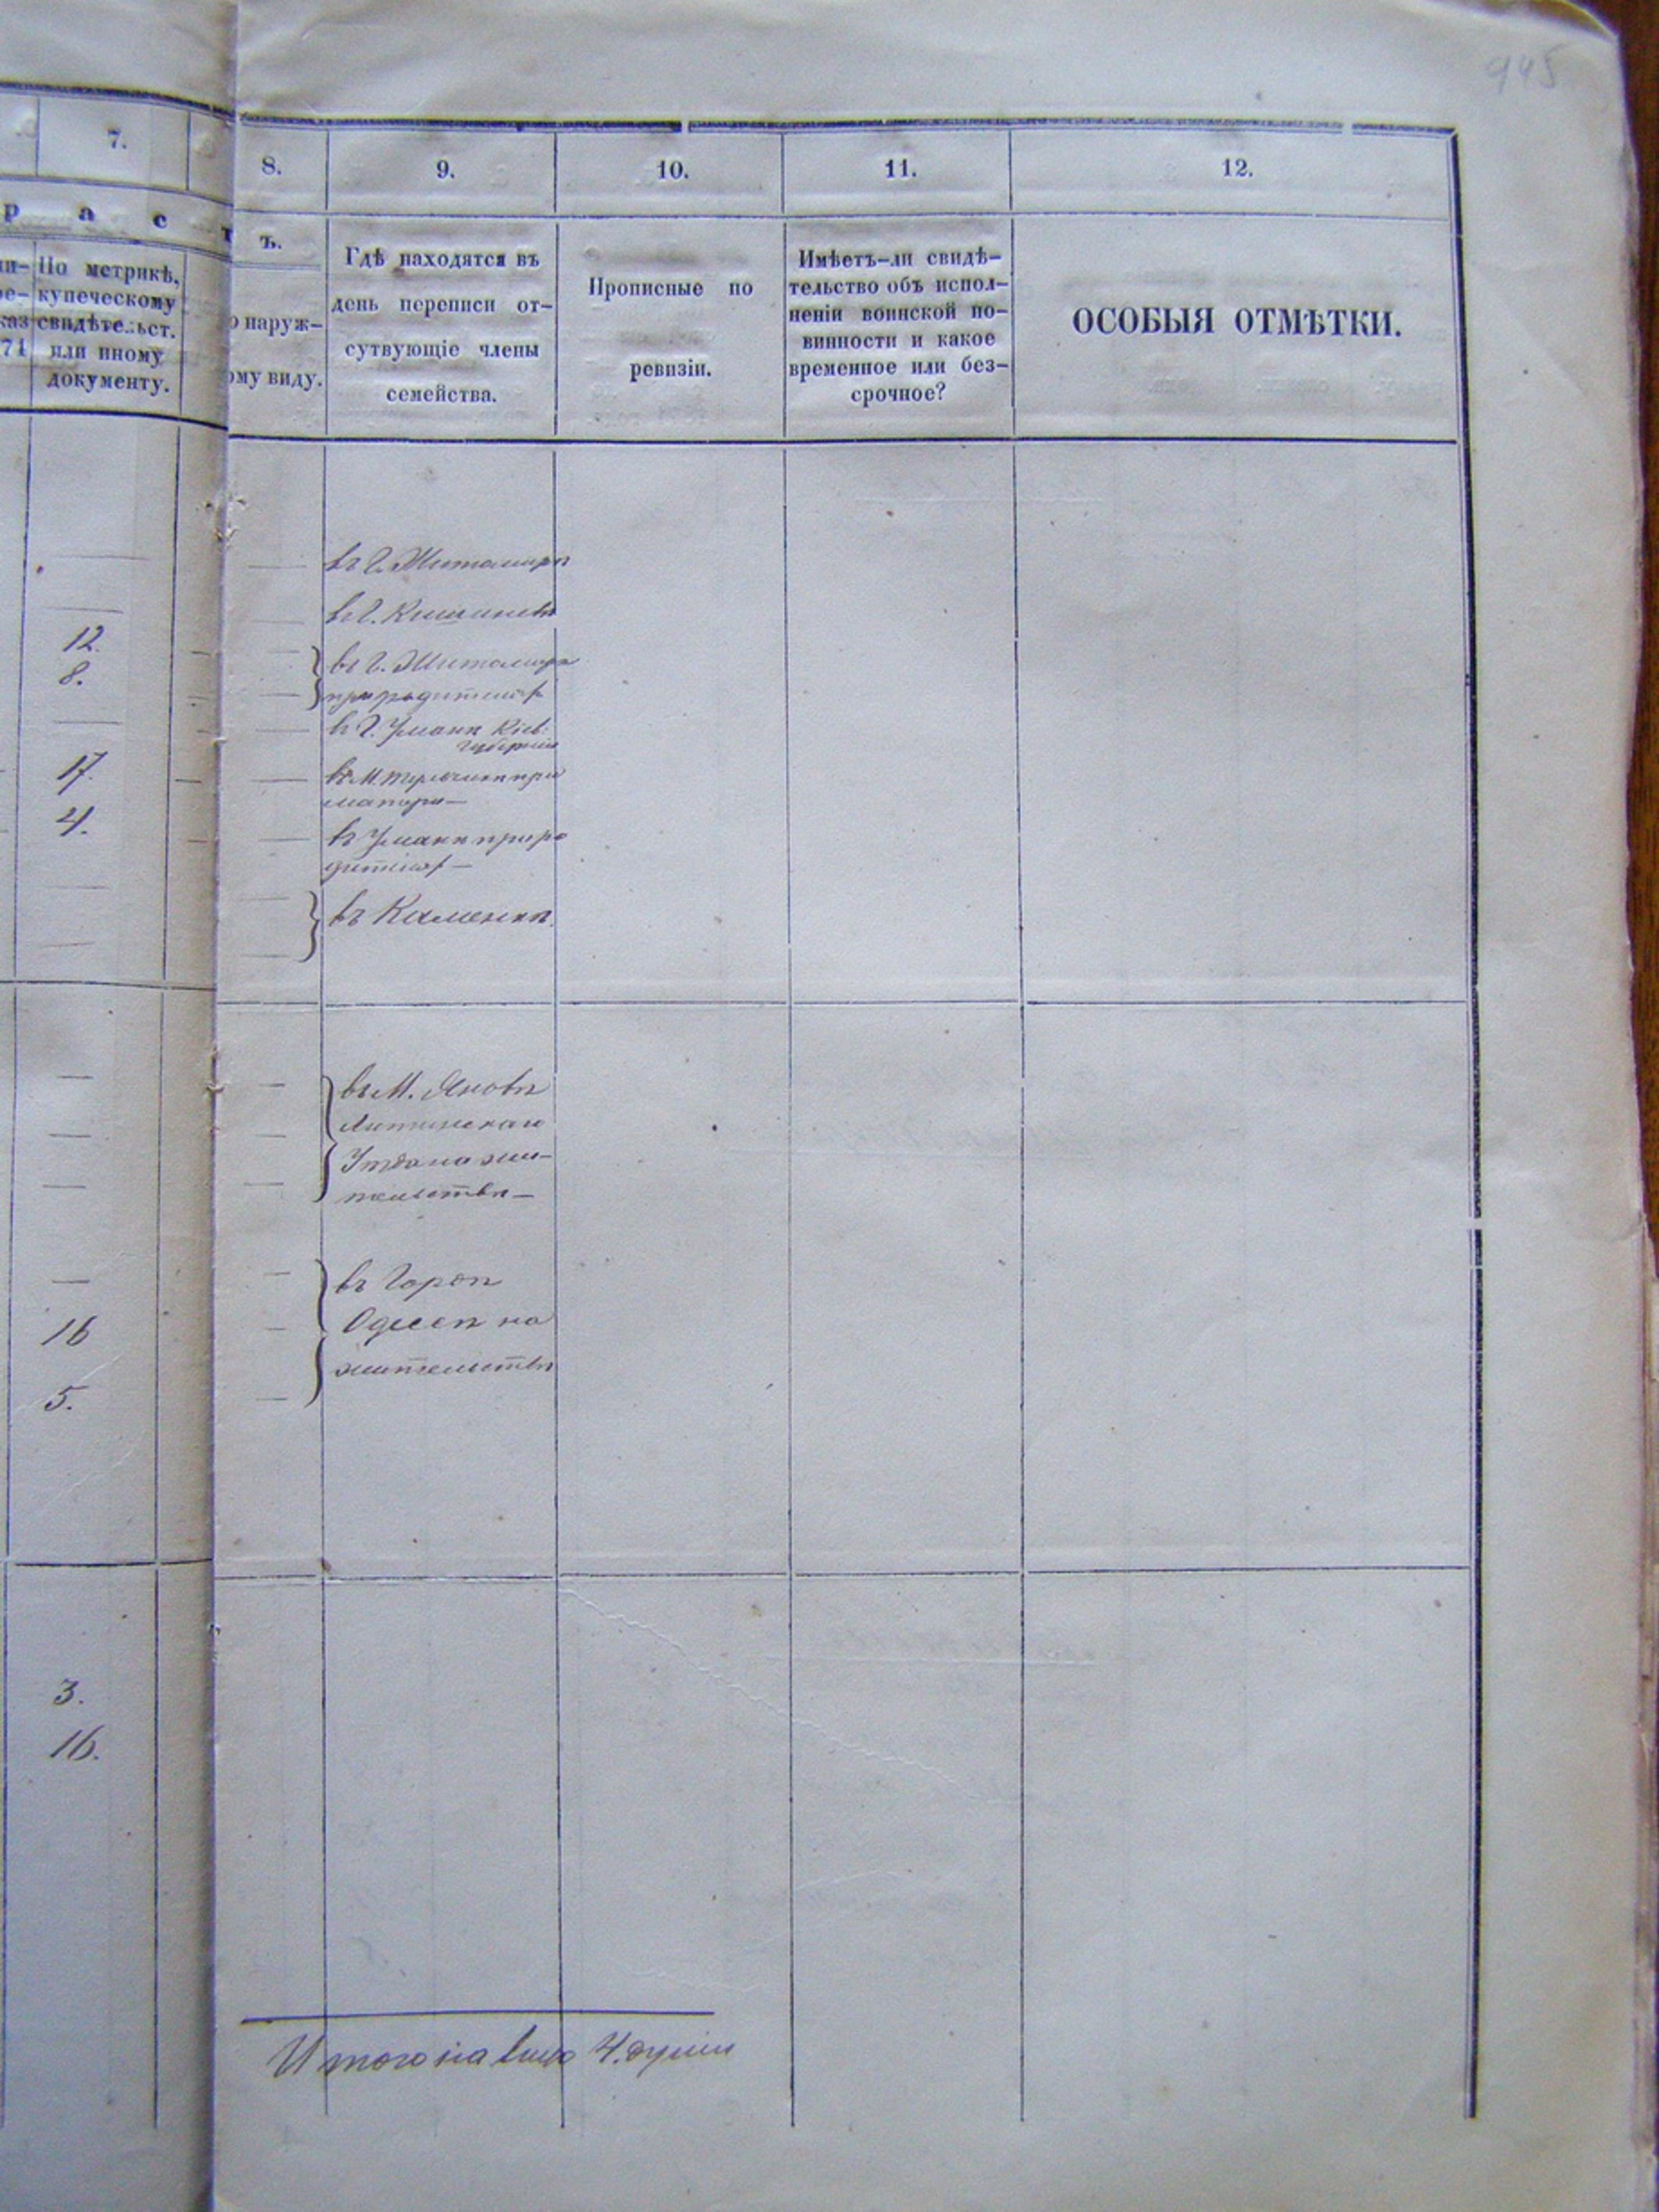 945
7.
8.
9.
10.
11.
12.
р а с т
ъ.
По метрикѣ,
купеческому
свидѣтельст.
или иному
документу.
71
о наруж-
ому виду.
Гдѣ находятся въ
день переписи от-
сутвующіе члены
семейства.
Прописные по
ревизіи.
Имѣетъ-ли свидѣ-
тельство объ испол-
неніи воинской по-
винности и какое
временное или без-
срочное?
ОСОБЫЯ ОТМѢТКИ.
въ г. Житомирѣ
въ г. Кишиневѣ
12.
8.
въ г. Житомирѣ
при родителях
въ г. Умани Кіев:
губерніи
17.
4.
въ М. при
матери—
въ Умани при ро
дителях—
въ Каменкѣ.
въ М. Яновѣ
Литинскаго
Уѣзда на жи-
тельствѣ—
въ Городѣ
Одессѣ на
жительствѣ
16
5.
3.
16.
Итого на лицо 4. души